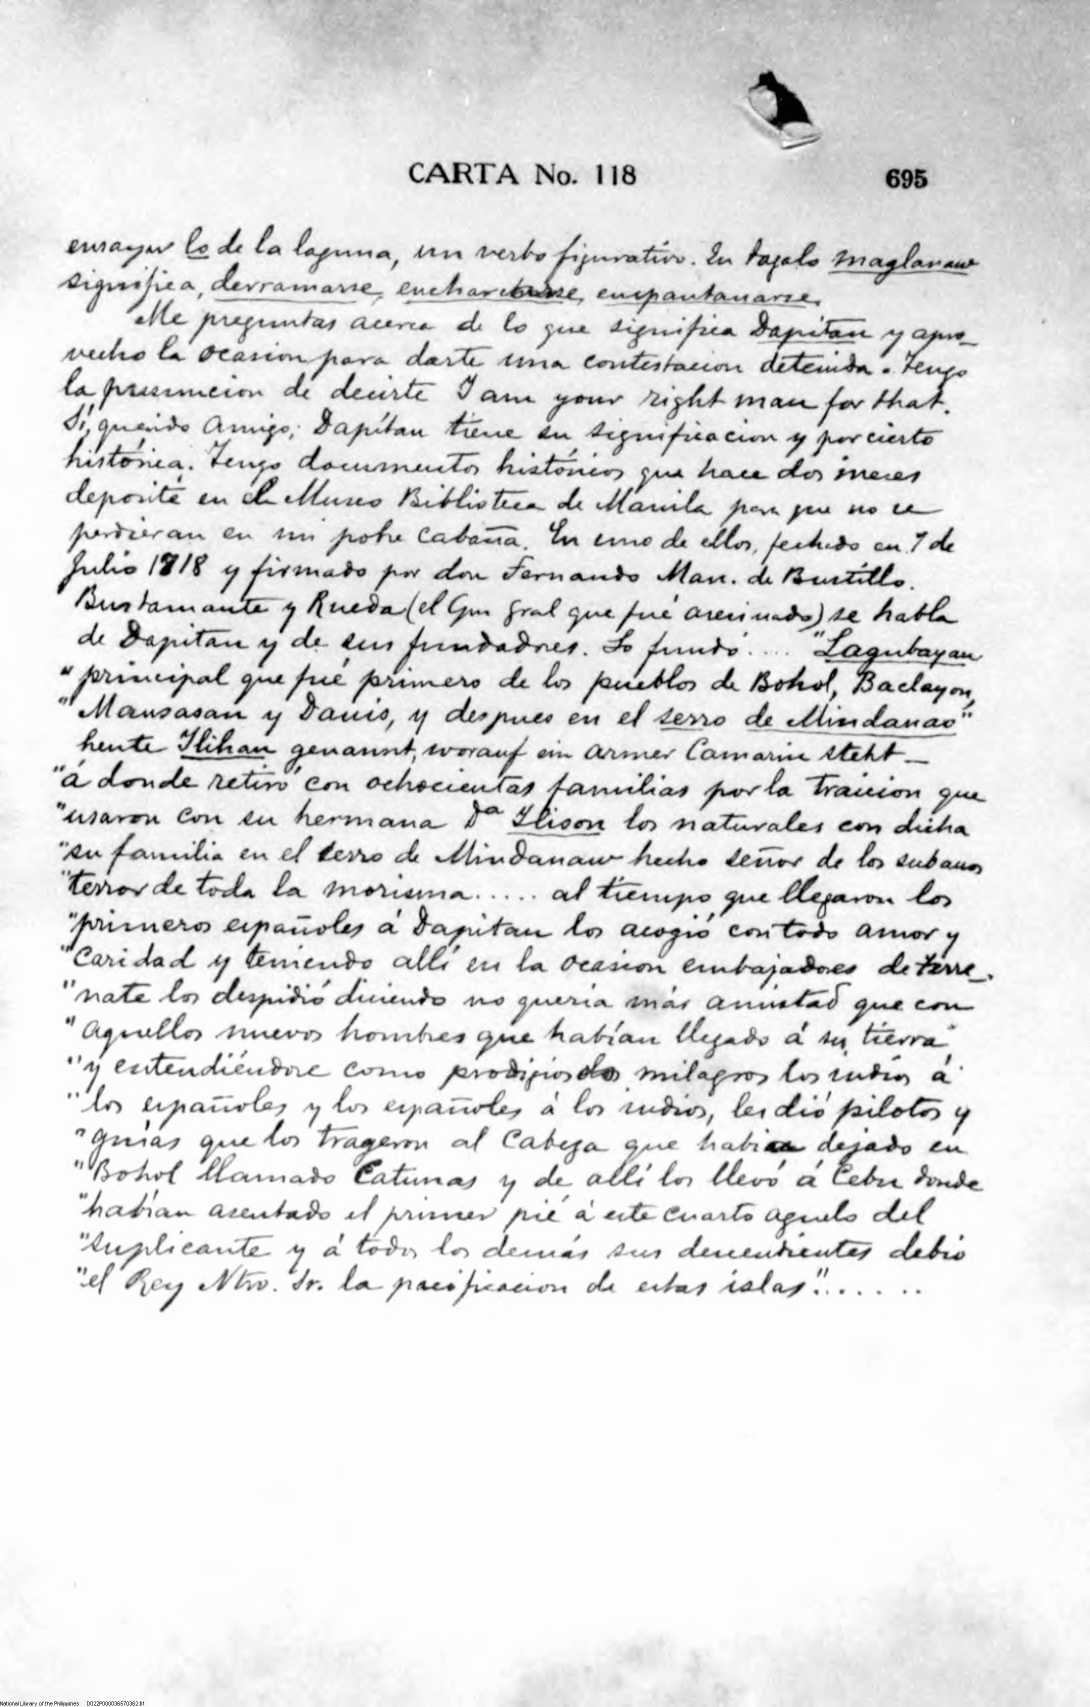 CARTA No. 118
695
ensayar lo de la laguna, un verbo figurativo. En tagalo maglanaw
significa, derramarse, encharcarse, empantanarse.
Me preguntas acerca de lo que significa Dapitan y apro-
vecho la ocasion para darte una contestacion detenida. Tengo
la presuncion de decirte I am your right man for that.
Sí, querido Amigo; Dapitan tiene su significacion y por cierto
histórica. Tengo documentos históricos que hace dos meses
deposité en el Museo Biblioteca de Manila para que no se
perdieran en mi pobre cabaña. En uno de ellos, fechado en 7 de
Julio 1718 y firmado por don Fernando Man. de Bustillo.
Bustamante y Rueda (el Gm gral que fué asesinado) se habla
de Dapitan y de sus fundadores. Lo fundó .... "Lagubayan
"principal que fué primero de los pueblos de Bohol, Baclayon,
"Mansasan y Dauis, y despues en el serro de Mindanao"
heute Ilihan genannt, worauf ein armer Camarin steht —
"á donde retiró con ochocientas familias por la traicion que
"usaron con su hermana Dª Ilison los naturales con dicha
"su familia en el serro de Mindanaw hecho señor de los subanos
"terror de toda la morisma..... al tiempo que llegaron los
"primeros españoles á Dapitan los acogió con todo amor y
"Caridad y teniendo allí en la ocasion embajadores de Terre-
"nate los despidió diciendo no quería más amistad que con
"aquellos nuevos hombres que habían llegado á su tierra"
"y entendiéndose como prodigiosos milagros los indios á
"los españoles y los españoles á los indios, les dió pilotos y
"guías que los trageron al Cabeza que habia dejado en
"Bohol llamado Catunas y de allí los llevó á Cebu donde
"habían asentado el primer pié á este cuarto aguelo del
"suplicante y á todos los demás sus descendientes debio
"el Rey Ntro. Sr. la pacificacion de estas islas".......
National Library of the Philippines